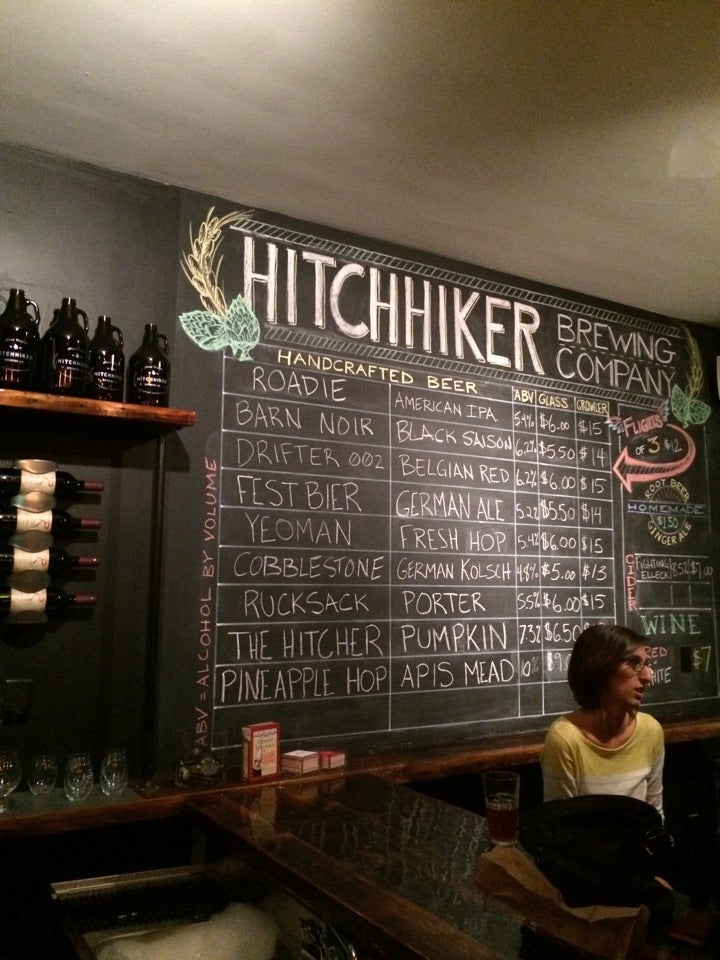 HITCHHIKER BREWING COMPANY
HANDCRAFTED BEER
ABV GLASS GROWLER
ROADIE AMERICAN IPA 5.4% $6.00 $15
BARN NOIR BLACK SAISON 6.2% $5.50 $14
DRIFTER 002 BELGIAN RED 6.2% $6.00 $15
FESTBIER GERMAN ALE 5.2% $5.50 $14
YEOMAN FRESH HOP 5.4% $6.00 $15
COBBLESTONE GERMAN KOLSCH 4.8% $5.00 $13
RUCKSACK PORTER 5.5% $6.00 $15
THE HITCHER PUMPKIN 7.3% $6.50
PINEAPPLE HOP APIS MEAD 10%
*ABV = ALCOHOL BY VOLUME
FLIGHTS
OF 3 $12
ROOT BEER
HOMEMADE
$1.50
GINGER ALE
CIDER
FIGHTING
ELLECK 8.5%
WINE
RED
$7
HITCHHIKER
HITCHHIKER
HITCHHIKER